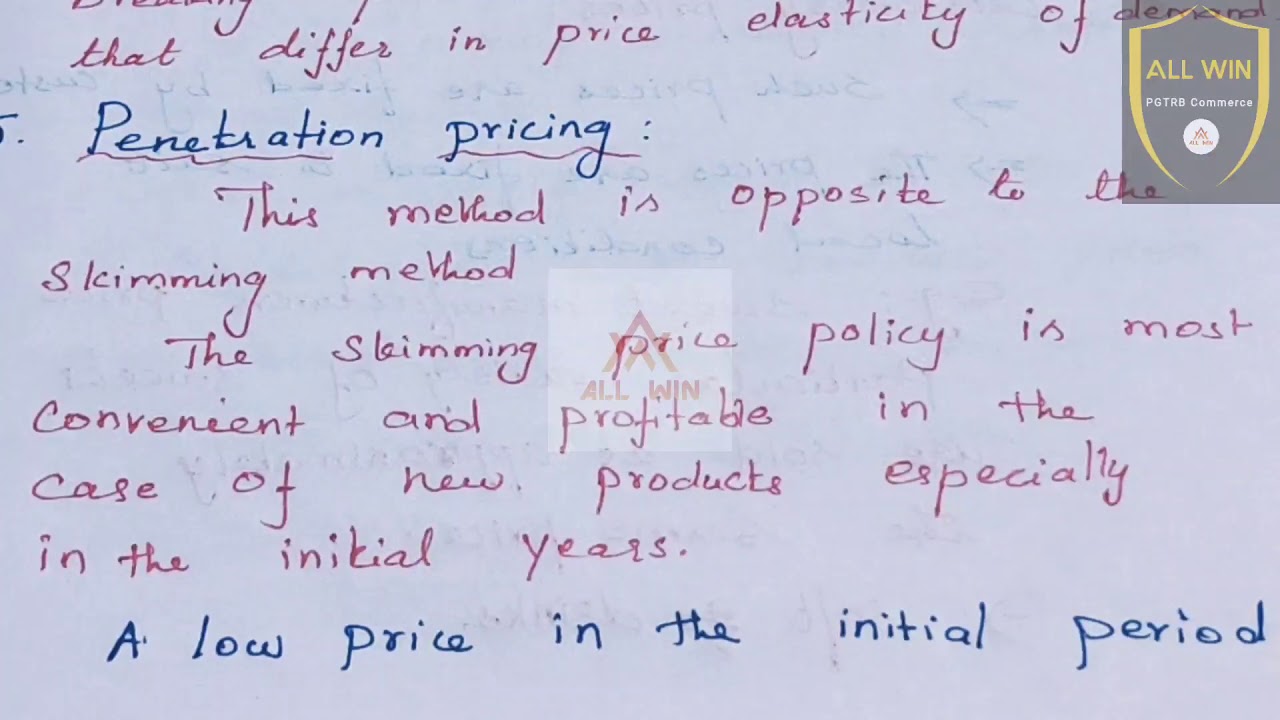 that differ in price elasticity of demand
5. Penetration pricing:
This method is opposite to the
skimming method
The skimming price policy is most
convenient and profitable in the
case of new products especially
in the initial years.
A low price in the initial period
ALL WIN
PGTRB Commerce
ALL WIN
ALL WIN